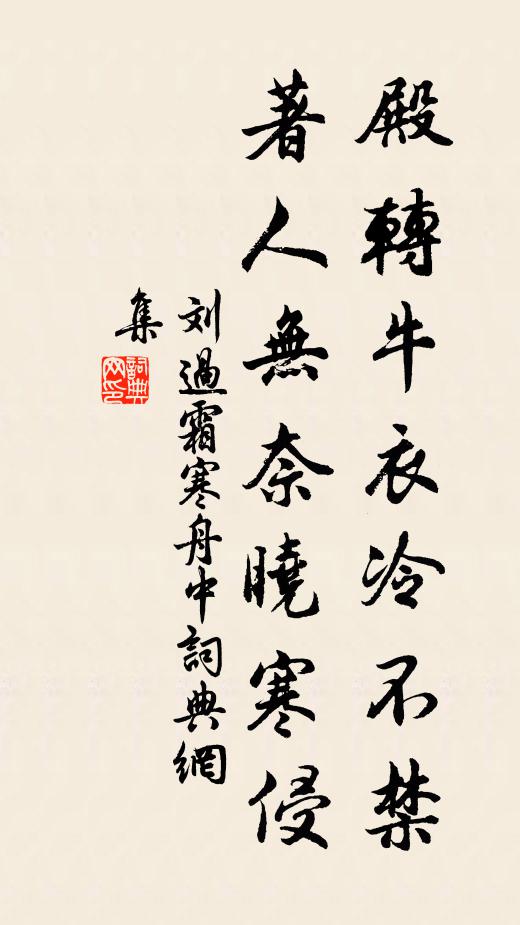 殿轉牛衣冷不禁
著人無奈曉寒侵
刘過霜寒舟中詞典網
集
詞典网印